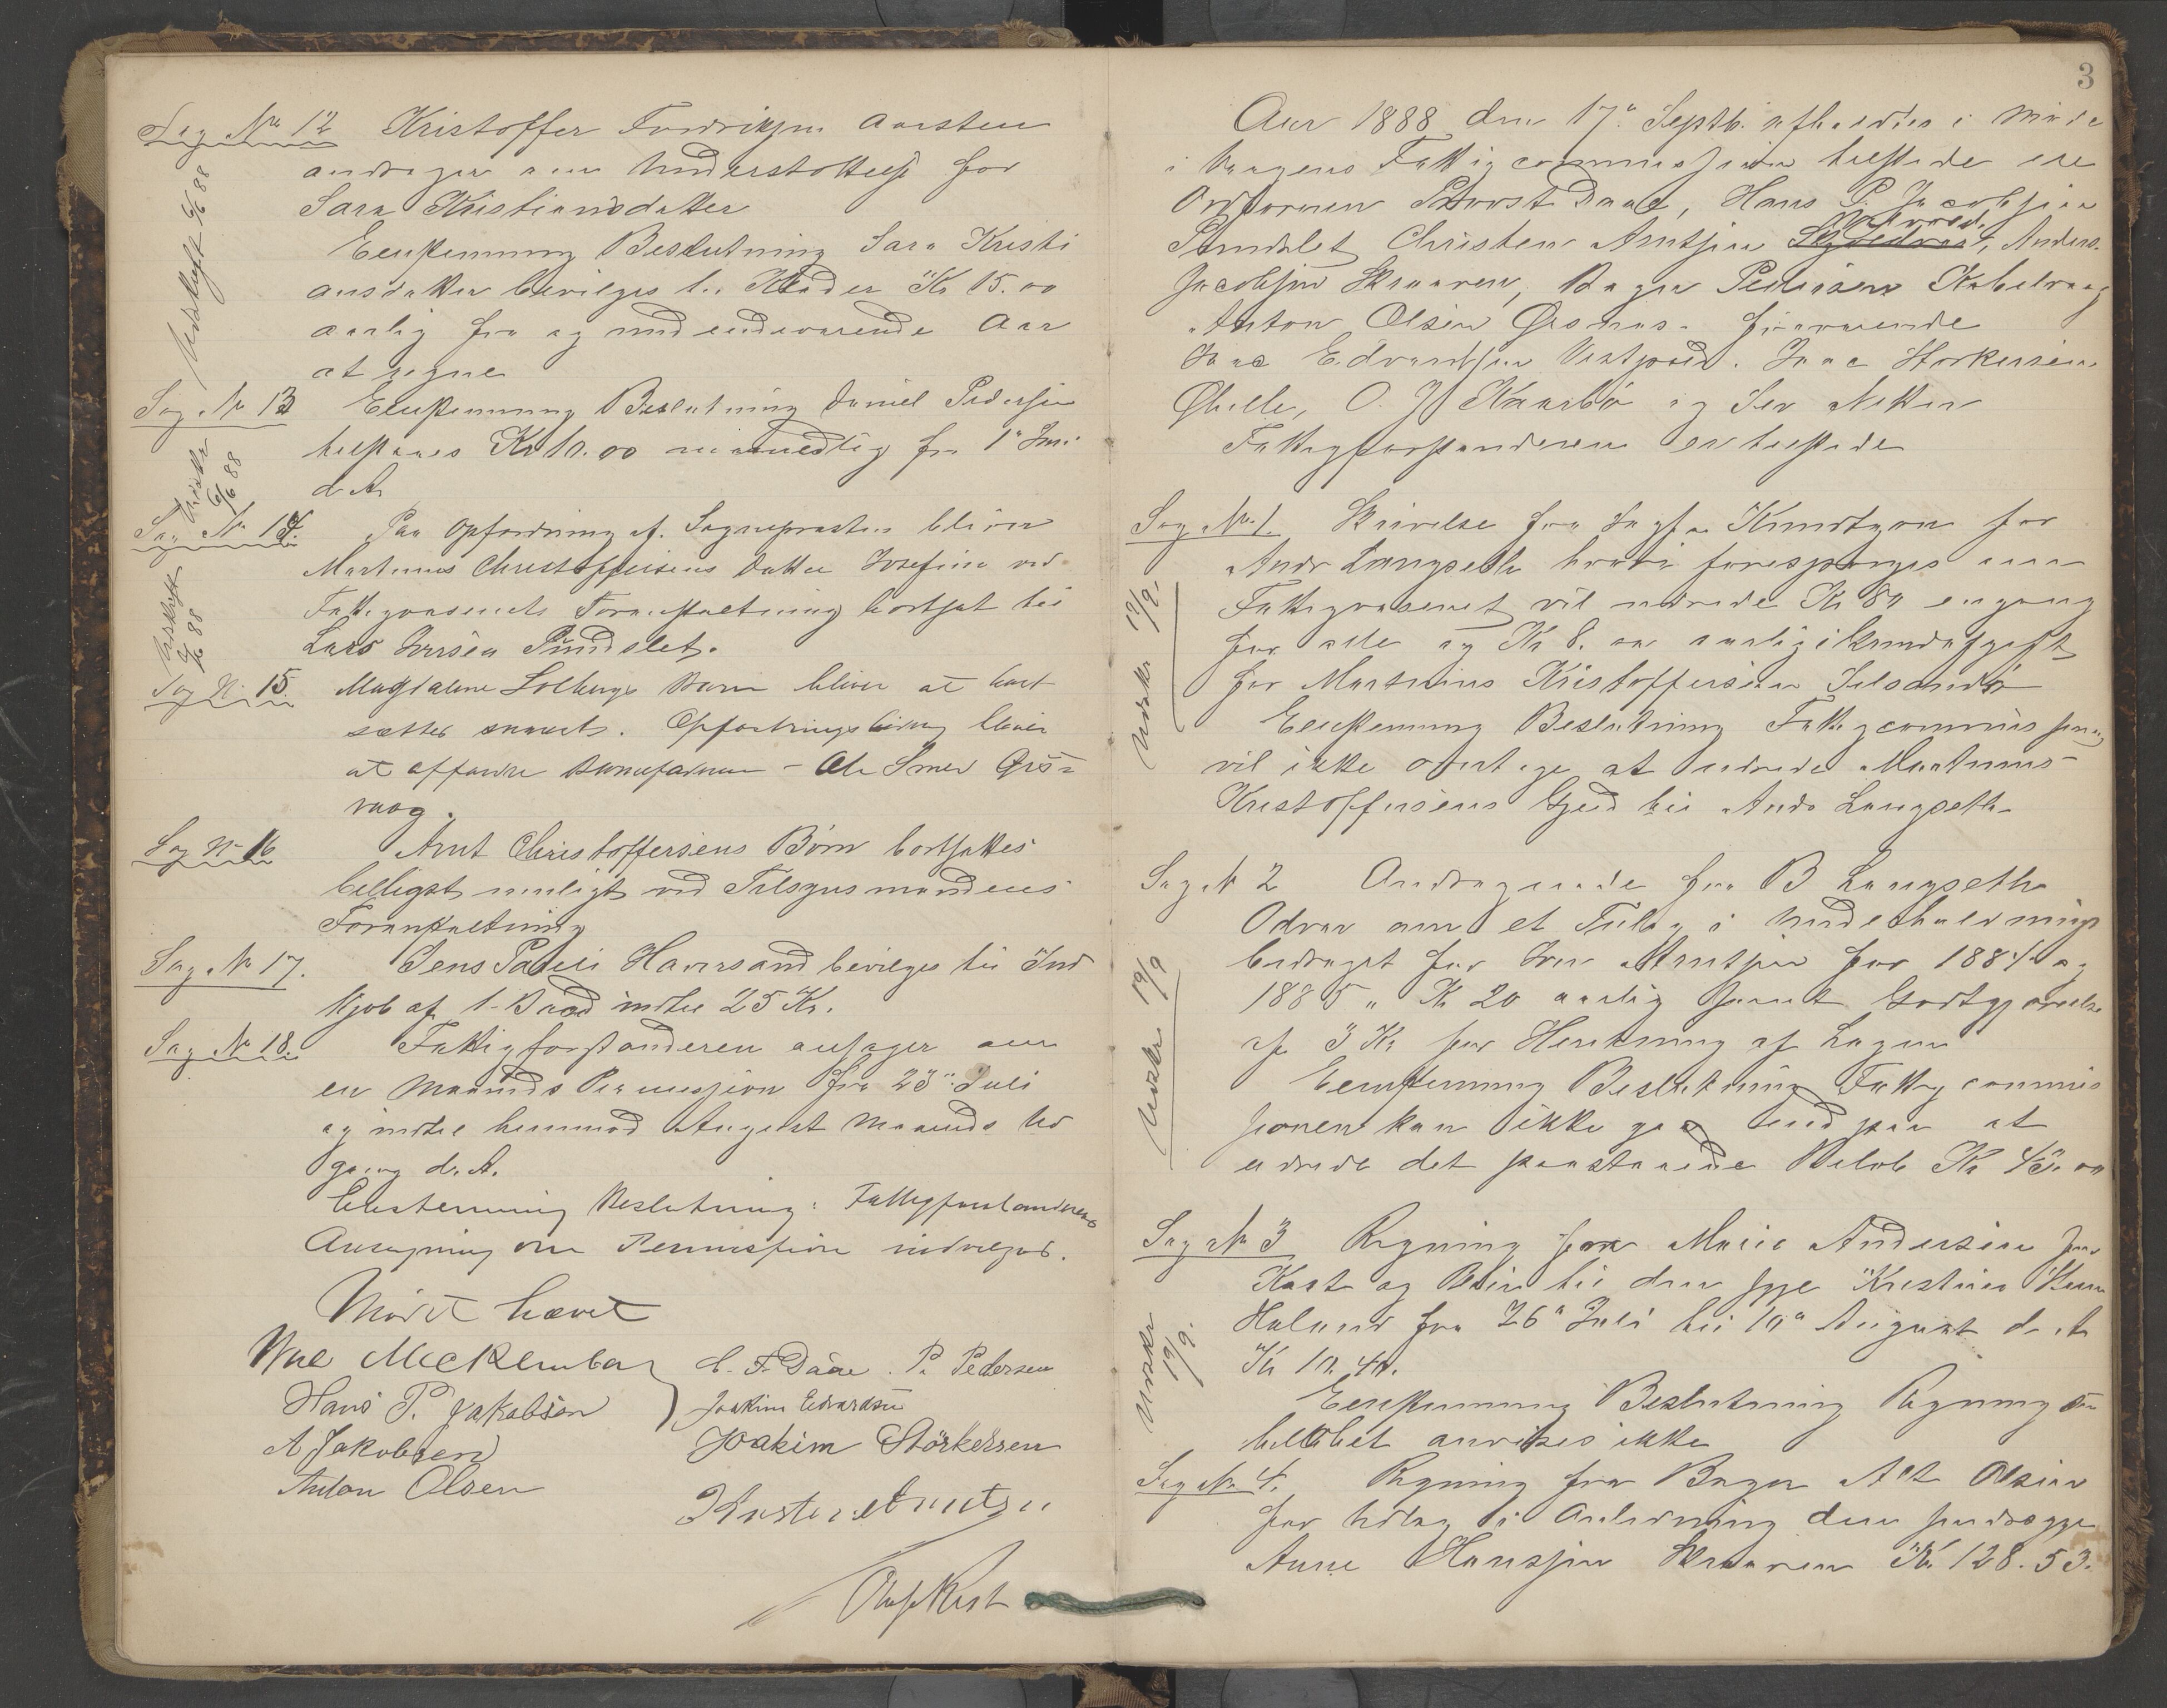 Sag No 12 Kristoffer Fredriksen Aarsten
andrager om Understøttelse for
Sara Kristiansdatter
Udskrift 6/6 88
Eenstemmig Beslutning Sara Kristi
ansdatter bevilges til Klæder Kr 15.00
aarlig fra og med indeværende Aar
at regne
Sag No 13 Eenstemmig Beslutning Daniel Pedersen
tilstaaes Kr 10.00 maanedlig fra 1ste Juni
d. A.
Udskr 6/6 88
Sag No 14. Paa Opfordring af Sognepræsten bliver
Martinus Christoffersens Datter Josefine ved
Fattigvæsenets Foranstaltning bortsat til
Lars Iversen Sundslet.
Udskrift 6/6 88
Sag No 15. Magdalene Solbergs Barn bliver at bort
sættes snarest. Opfostringsbidrag bliver
at affordre Barnefaderen - Ole Smed Gris=
vaag.
Sag No 16 Arnt Christoffersens Børn bortsættes
billigst muligt ved Tilsynsmandens
Foranstaltning
Sag No 17. Jens Haversand bevilges til Ind
kjøb af 1 Baad indtil 25 Kr.
Sag No 18. Fattigforstanderen ansøger om
en Maaneds Permission fra 23de Juli
og indtil henimod August Maaneds Ud
gang d. A.
Eenstemmig Beslutning: Fattigforstanderens
Ansøgning om Permission indvilges.
Mødet hævet
Meeklenburg C. F. Daae. P. Pedersen
Hans P. Jakobsen Joakim Edvardsen
A Jakobsen Joakim Størkersen
Anton Olsen
Kristen Arntsen
3
Aar 1888 den 17de Septb. afholdtes i Møde
i Vaagens Fattigcommission tilstede ere
Ordføreren Provst Daae, Hans P. Jacobsen
Sundslet Christen Arntsen Anders
Jacobsen Skaaren, Bager Pedersen Kabelvaag
Anton Olsen Ørsnes. fraværende
Joac Edvardsen Vestpold. Joac Størkersen
Ghelle, O. J. Kaarbø og
Fattigforstanderen er tilstede
Sag No 1. Skrivelse fra Sagf. Knudtzon for
Andr Langseth hvori forespørges om
Fattigvæsenet vil udrede Kr 80 engang
for alle og Kr 8.00 aarlig i Grundafgift
for Martinus Kristoffersen
Udskr 19/9.
Eenstemmig Beslutning Fattigcommissionen
vil ikke overtage at udrede Martinus
Kristoffersens Gjeld til Andr Langseth
Sag No 2 Andragende fra B Langseth
Odvær om et Tillæg i Underholdnings
bidraget for Arntsen for 1884 og
1885 " Kr 20 aarlig samt Godtgjørelse
af 3 Kr for Hentning af Lægen
Udskr 19/9
Eenstemmig Beslutning Fattigcommis
sionen kan ikke gaa ind paa at
udrede det paastaaede Beløb Kr 43.00
Sag No 3 Regning fra Marie Andersen for
Kost og Pleie til den syge Kristine
Holand fra 26de Juli til 10de August d. A
Kr 10.40.
Udskr 19/9.
Eenstemmig Beslutning Regnings
beløbet anvises ikke
Sag No 4. Regning fra Bager Olsen
for Udlæg i Anledning den sindssyge
Anne Hansen Skaaren Kr 128.53.